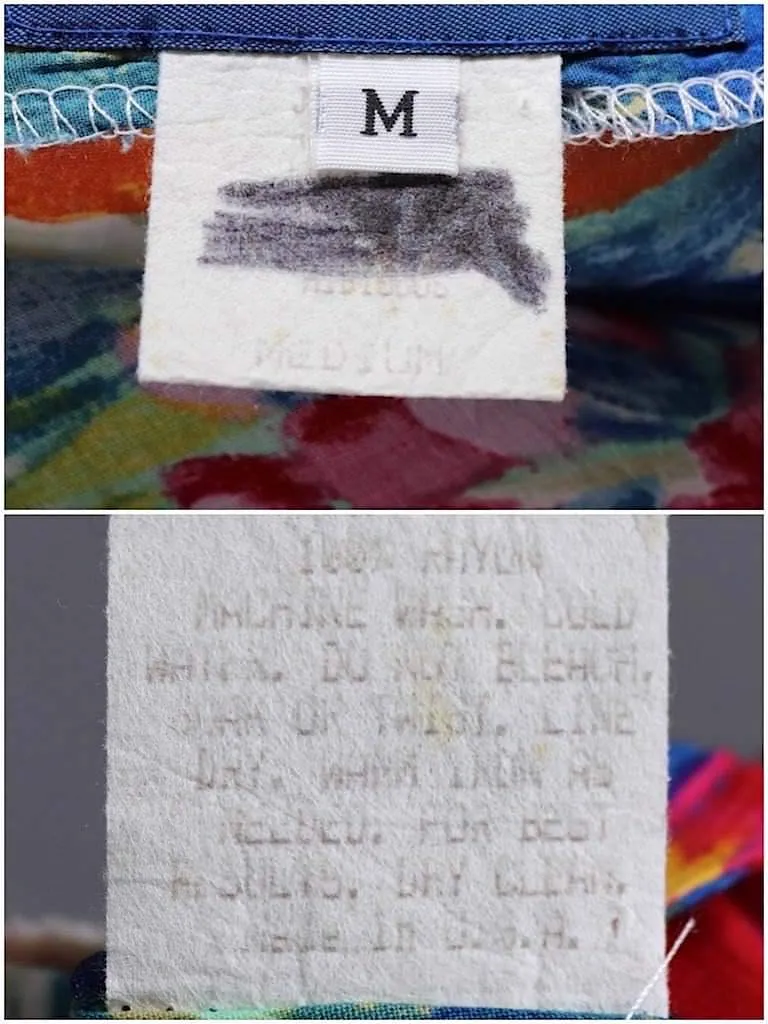 M
MEDIUM
100% RAYON
MACHINE WASH. COLD
WATER. DO NOT BLEACH.
SOAK OR TWIST. LINE
DRY. WARM IRON AS
NEEDED. FOR BEST
RESULTS. DRY CLEAN.
MADE IN U.S.A.